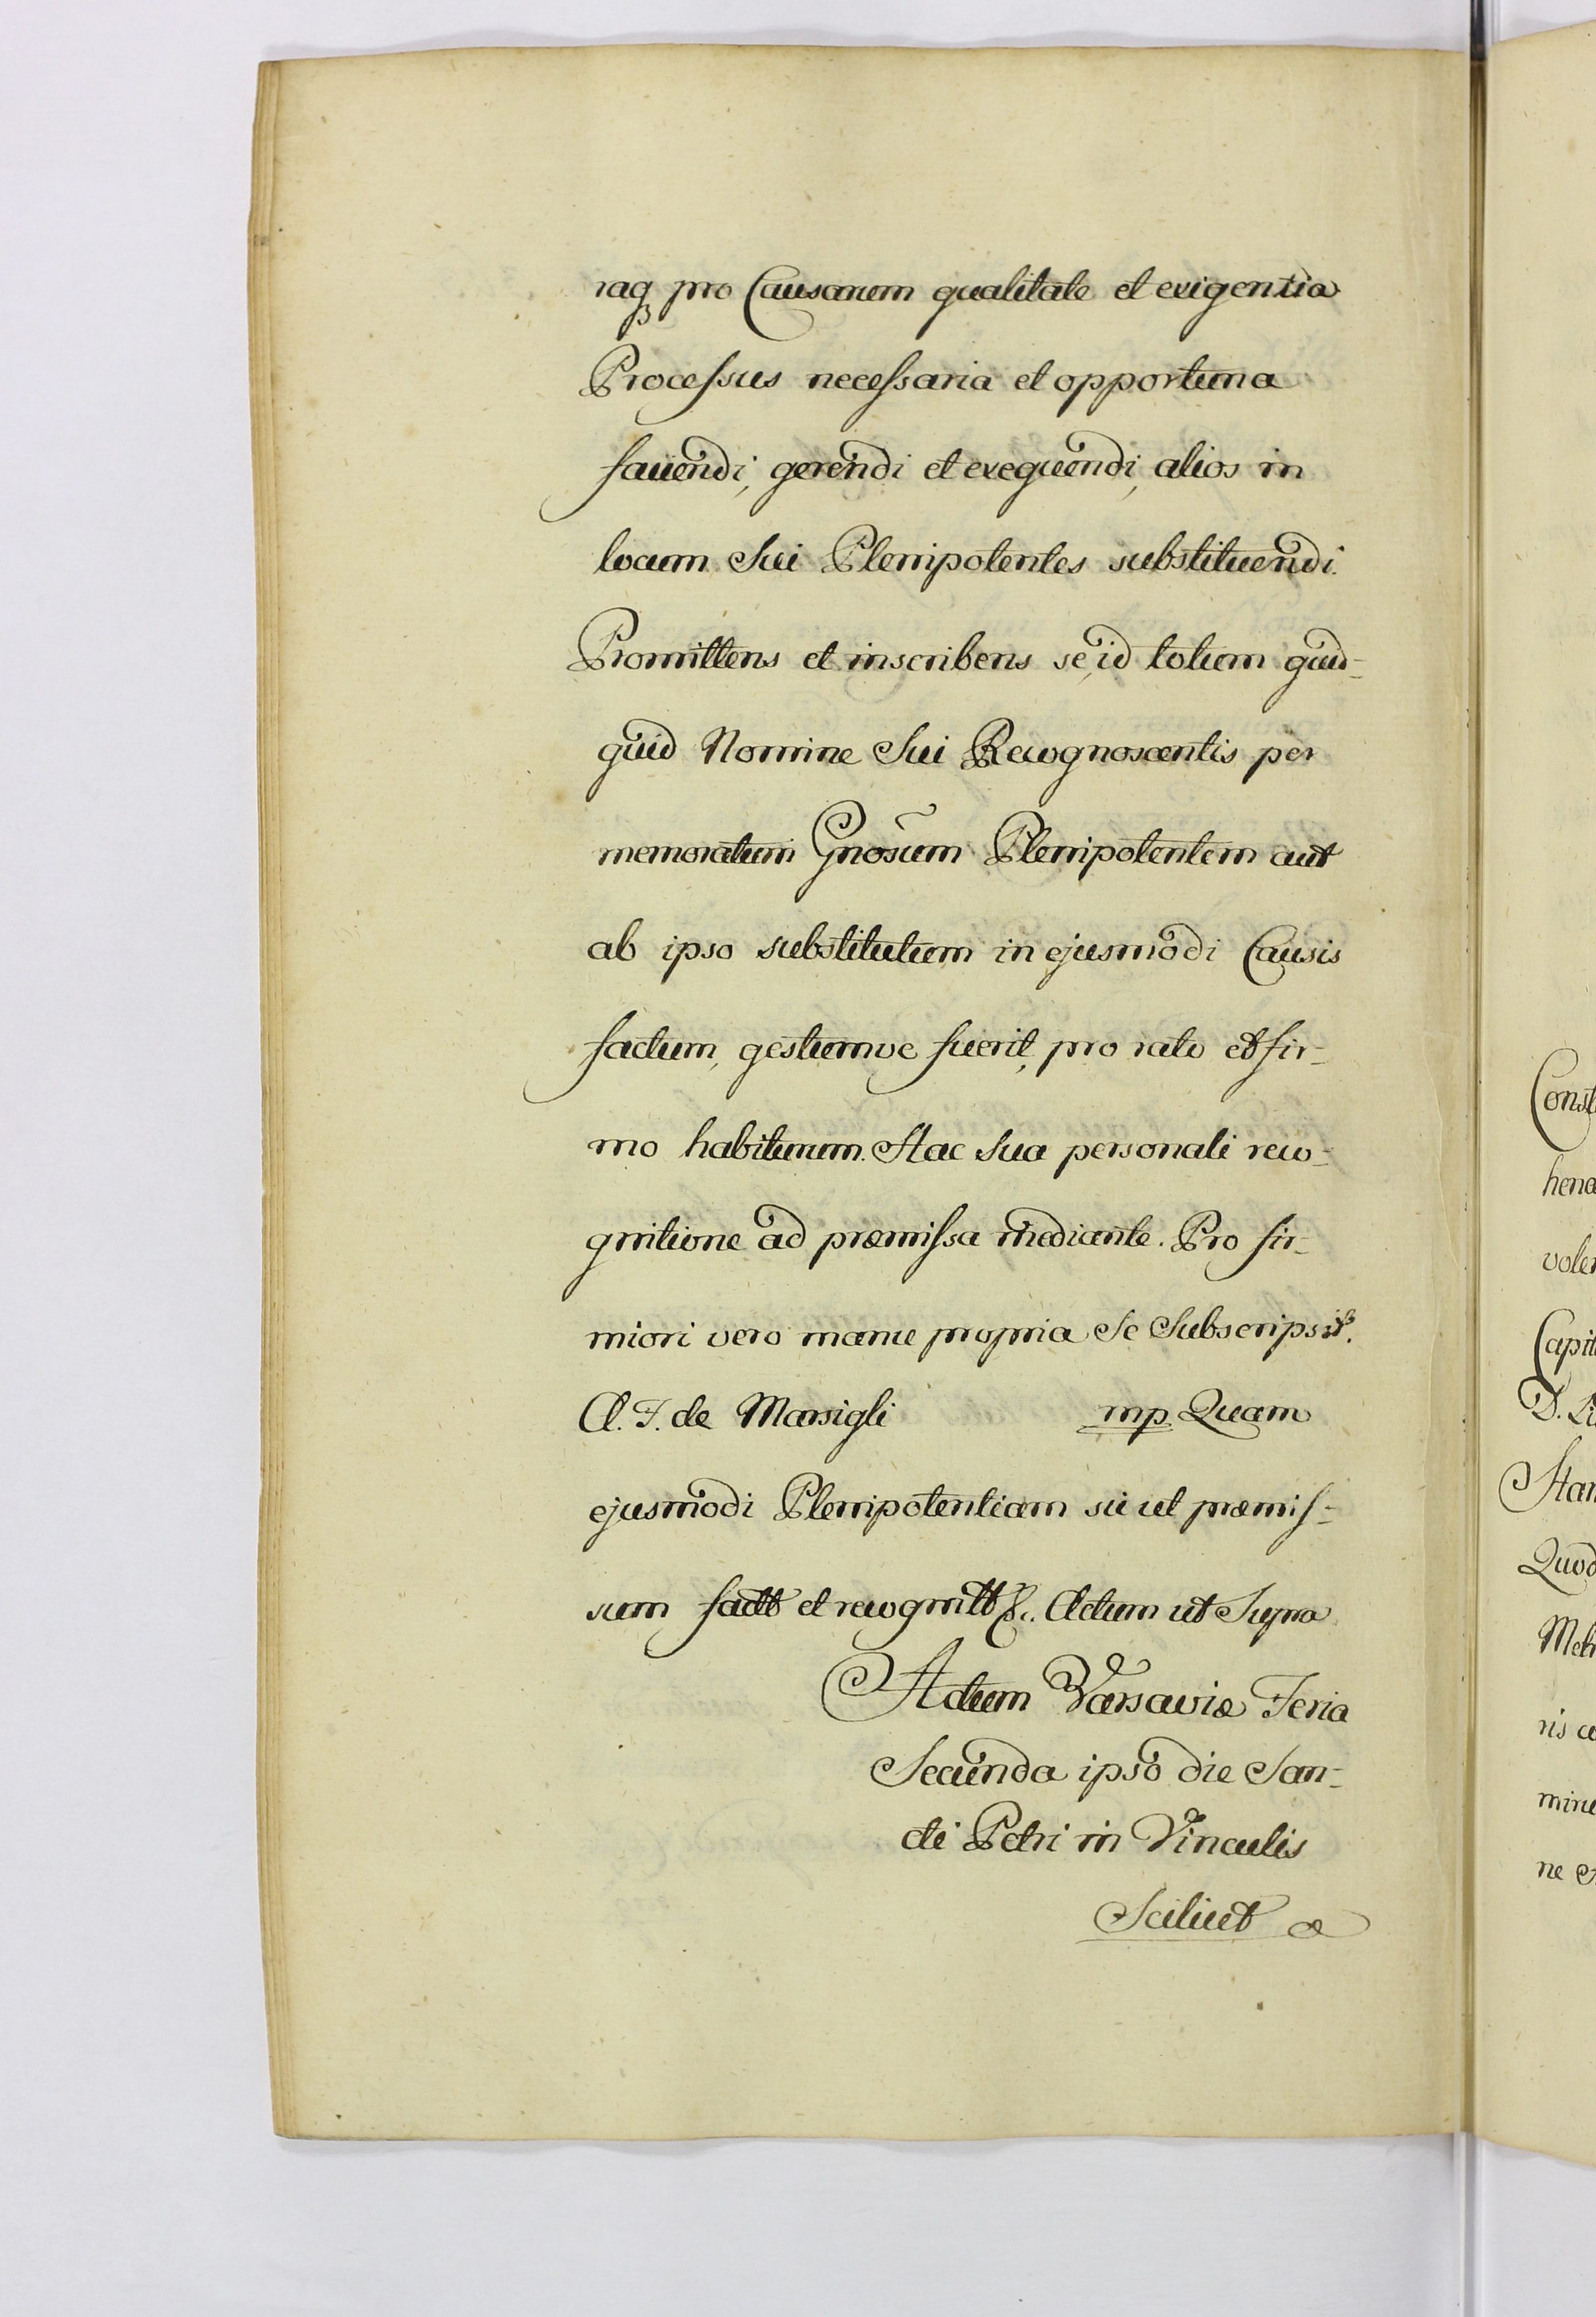 raq́ pro Causarum qualitate et exigentia
Processus necessaria et opportuna
faciendi, gerendi et exequendi, alios in
locum Sui Plenipotentes substituendi.
Promittens et inscribens se, id totum quid-
quid Nomine Sui Recognoscentis per
memoratum Gnosum Plenipotentem aut
ab ipso substitutum in ejusmodi Causis
factum, gestumve fuerit, pro rato et fir-
mo habiturum. Hac Sua personali reco-
gnitione ad præmissa mediante. Pro fir-
miori vero manu propria Se Subscripsit.
A. F. de Marsigli mp Quam
ejusmodi Plenipotentiam sicut præmis-
sum factt et recognitt &c. Actum ut Supra
Actum Varsaviæ Feria
Secunda ipso die San-
cti Petri in Vinculis
Scilicet
Const
hend
Capit
Stan
Quod
ris
mine
ne